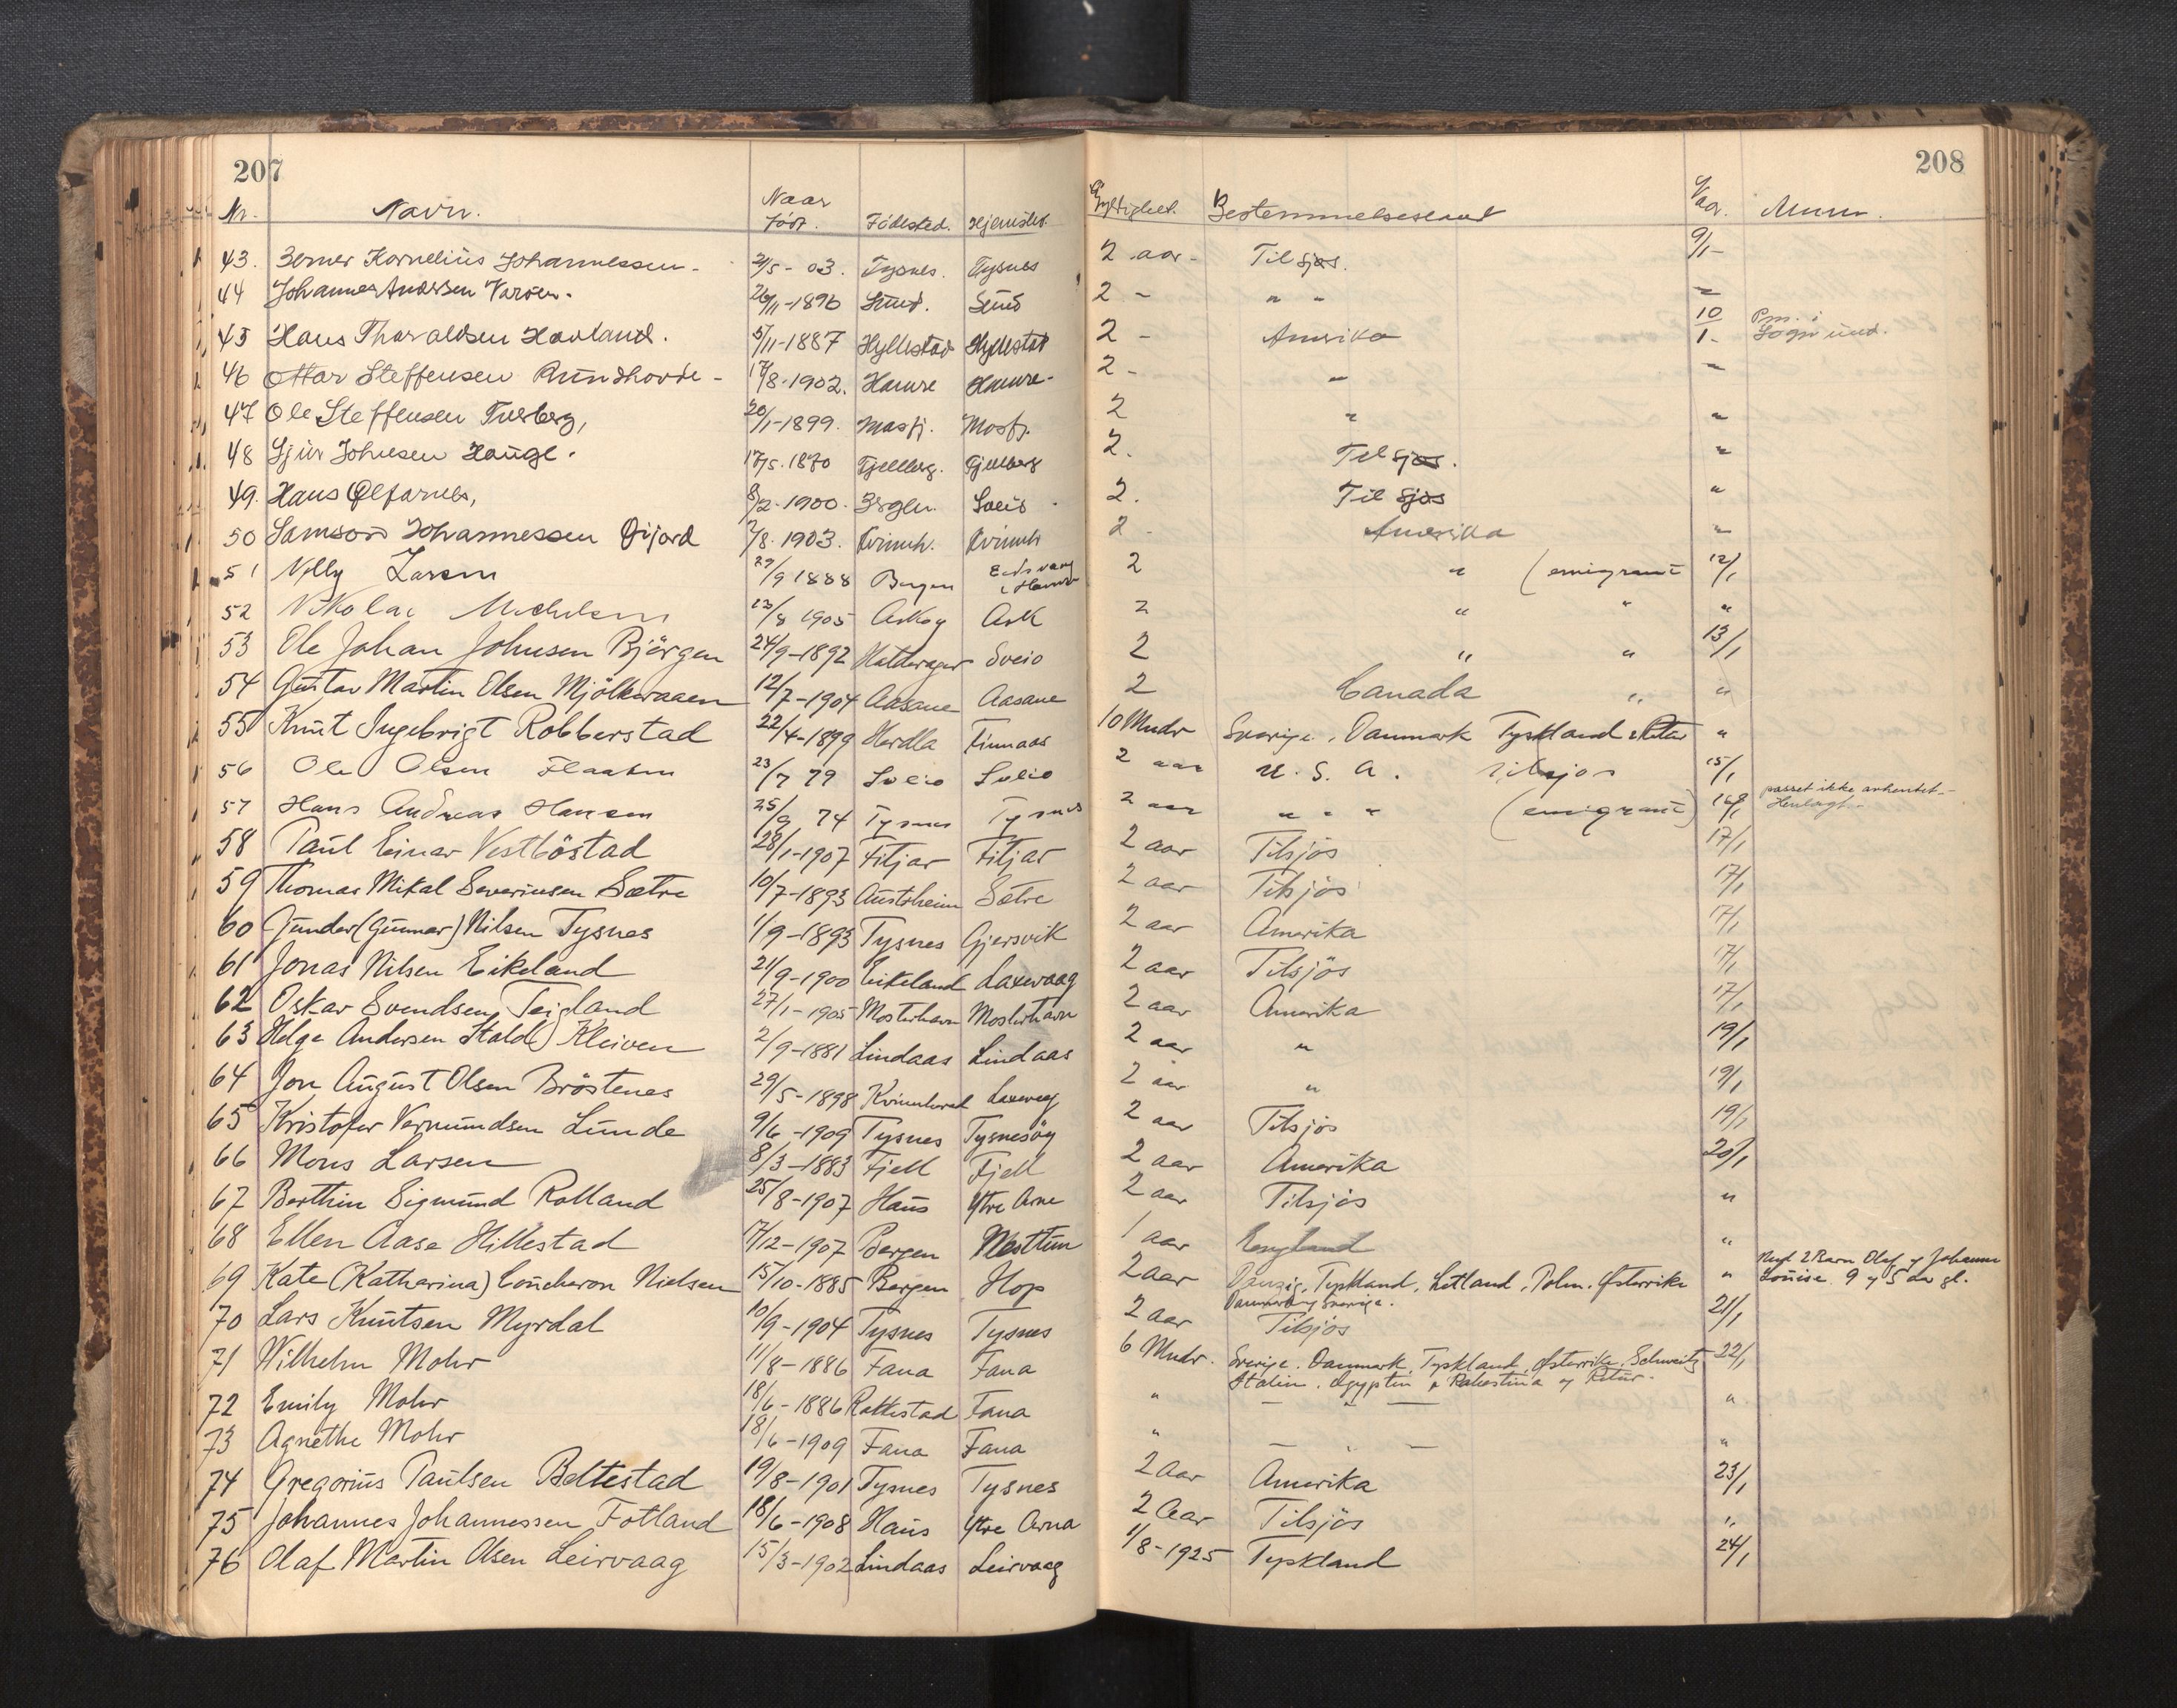 207
208
Nr. Navn. Naar født. Fødested. Hjemsted. Gyldighet. Bestemmelsesland Naar. Anm.
43. Berner Kornelius Johannessen - 2/5 - 03. Tysnes. Tysnes 2 aar - Til sjøs. 9/1 -
44 Johannes Andersen Varøen. 26/11-1896 Sund. Sund 2 - " "
45 Hans Tharaldsen Havland. 5/11-1887 Hyllestad Hyllestad 2 - Amerika 10/1 - Pm. i Sogn und.
46 Ottar Steffensen Rundhovde - 17/8-1902. Hamre Hamre - 2 - "
47 Ole Steffensen 20/1-1899. Masfj. Masfj. 2 " "
48 Sjur Johnesen Hauge. 17/5-1870 Fjelberg. Fjelberg 2. Til sjøs. "
49. Hans Ølfarnes, 8/2-1900. Sveio 2. Til sjøs "
50 Samson Johannessen Øijord 7/8-1903. Kvinnh. Kvinnh 2 - Amerika "
51 Nelly Larsen 29/9 1888 Bergen Eidsvaag i Hamre 2 " (emigrant 12/1
52 Nikolai Michelsen 23/8 1905 Askøy Ask 2 " " "
53 Ole Johan Johnsen Björgen 24/9-1892 Sveio 2 " " 13/1
54 Gustav Martin Olsen Mjölkeraaen 12/7-1904 Aasane Aasane 2 Canada " "
55 Knut Ingebrigt Robberstad 22/4-1899 Herdla Finnaas 10 Mndr Sverige, Danmark Tyskland & Retur "
56 Ole Olsen Flaaten 23/7 79 Sveio Sveio 2 aar U. S. A. tilsjøs 15/1
57 Hans Andreas Hansen 25/9 74 Tysnes Tysnes 2 aar " " " (emigrant) 16/1 passet ikke avhentet. - Henlagt -
58 Paul Einar Vestböstad 28/1-1907 Fitjar Fitjar 2 aar Tilsjös 17/1
59 Thomas Mikal Severinsen Sætre 10/7-1893 Austrheim Sætre 2 aar Tilsjös 17/1
60 Gunder (Gunnar) Nilsen Tysnes 1/9-1893 Tysnes Gjersvik 2 aar Amerika 17/1
61 Jonas Nilsen Eikeland 21/9-1900 Eikeland Laxevaag 2 aar Tilsjös 17/1
62 Oskar Svendsen Teigland 27/1-1905 Mosterhavn Mosterhavn 2 aar Amerika 17/1
63 Helge Andersen Hald) Kleiven 2/9-1881 Lindaas Lindaas 2 aar " 19/1
64 Jon August Olsen Bröstenes 29/5-1898 Kvinnherad Laxevaag 2 aar " 19/1
65 Kristofer Vermundsen Lunde 9/6-1909 Tysnes Tysnesöy 2 aar Tilsjös 19/1
66 Mons Larsen 8/3-1883 Fjell Fjell 2 aar Amerika 20/1
67 Berthin Sigmund Rolland 25/8-1907 Haus Ytre Arne 2 aar Tilsjös "
68 Ellen Aase Hillestad 17/12-1907 Bergen Nesttun 1 aar England "
69 Kate (Katharina) Concheron Nielsen 15/10-1885 Bergen Hop 2 aar Danzig, Tyskland, Letland, Polen, Østerrike " Med 2 Barn Olaf og Johanne
Danmark og Sverige. Louise 9 og 5 aar gl.
70 Lars Knutsen Myrdal 10/9-1904 Tysnes Tysnes 2 aar Tilsjös 21/1
71 Wilhelm Mohr 11/8-1886 Fana Fana 6 Mndr. Sverige. Danmark, Tyskland, Østerrike, Schweitz 22/1
Italien. Ægypten, Palestina og Retur.
72 Emily Mohr 18/6-1886 Rakkestad Fana " — " — "
73 Agnethe Mohr 18/6-1909 Fana Fana " — " — "
74 Gregorius Paulsen Beltestad 19/8-1901 Tysnes Tysnes 2 Aar Amerika 23/1
75 Johannes Johannessen Fotland 18/6-1908 Haus Ytre Arna 2 Aar Tilsjös "
76 Olaf Martin Olsen Leirvaag 15/3-1902 Lindaas Leirvaag 1/8-1925 Tyskland 24/1